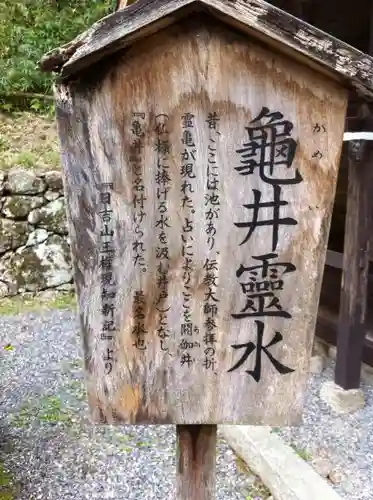 龜井靈水
かめい
昔、ここには池があり、伝教大師参拝の折、
霊亀が現れた。占いによりここを閼伽井
（仏様に捧げる水を汲む井戸）となし、
『亀井』と名付けられた。　最名水也
『日吉山王権現知新記』より